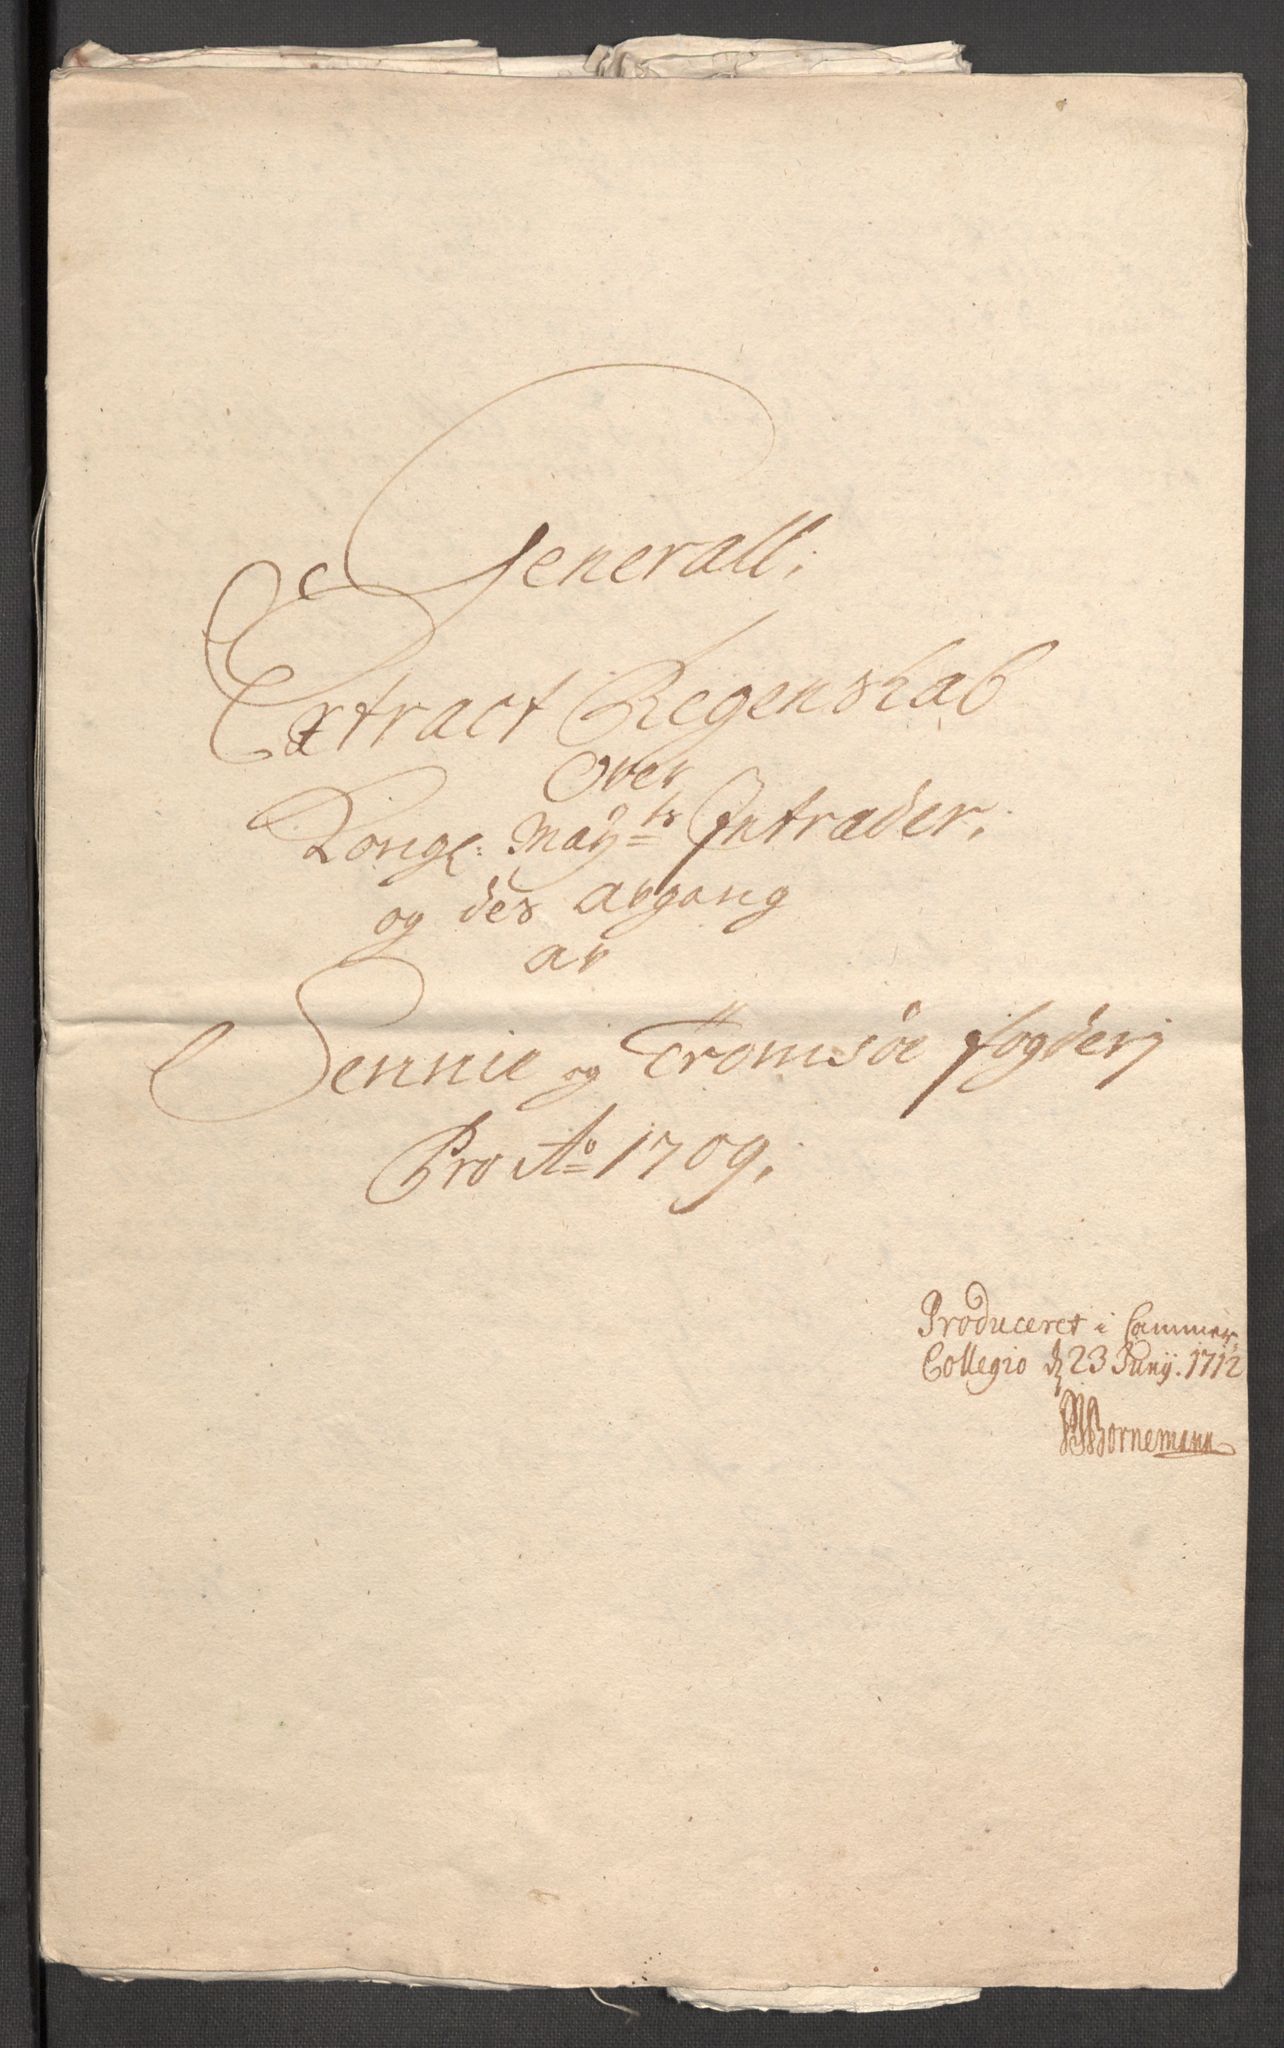 Generall;
Extract Regenskab
Over
Kongl: May:ts Intrader,
og des afgang
af
Sennie og Tromsøe fogderj
Pro Ao 1709,
Produceret i Cammer,
Collegio d 23 Junij. 1712
Bornemann